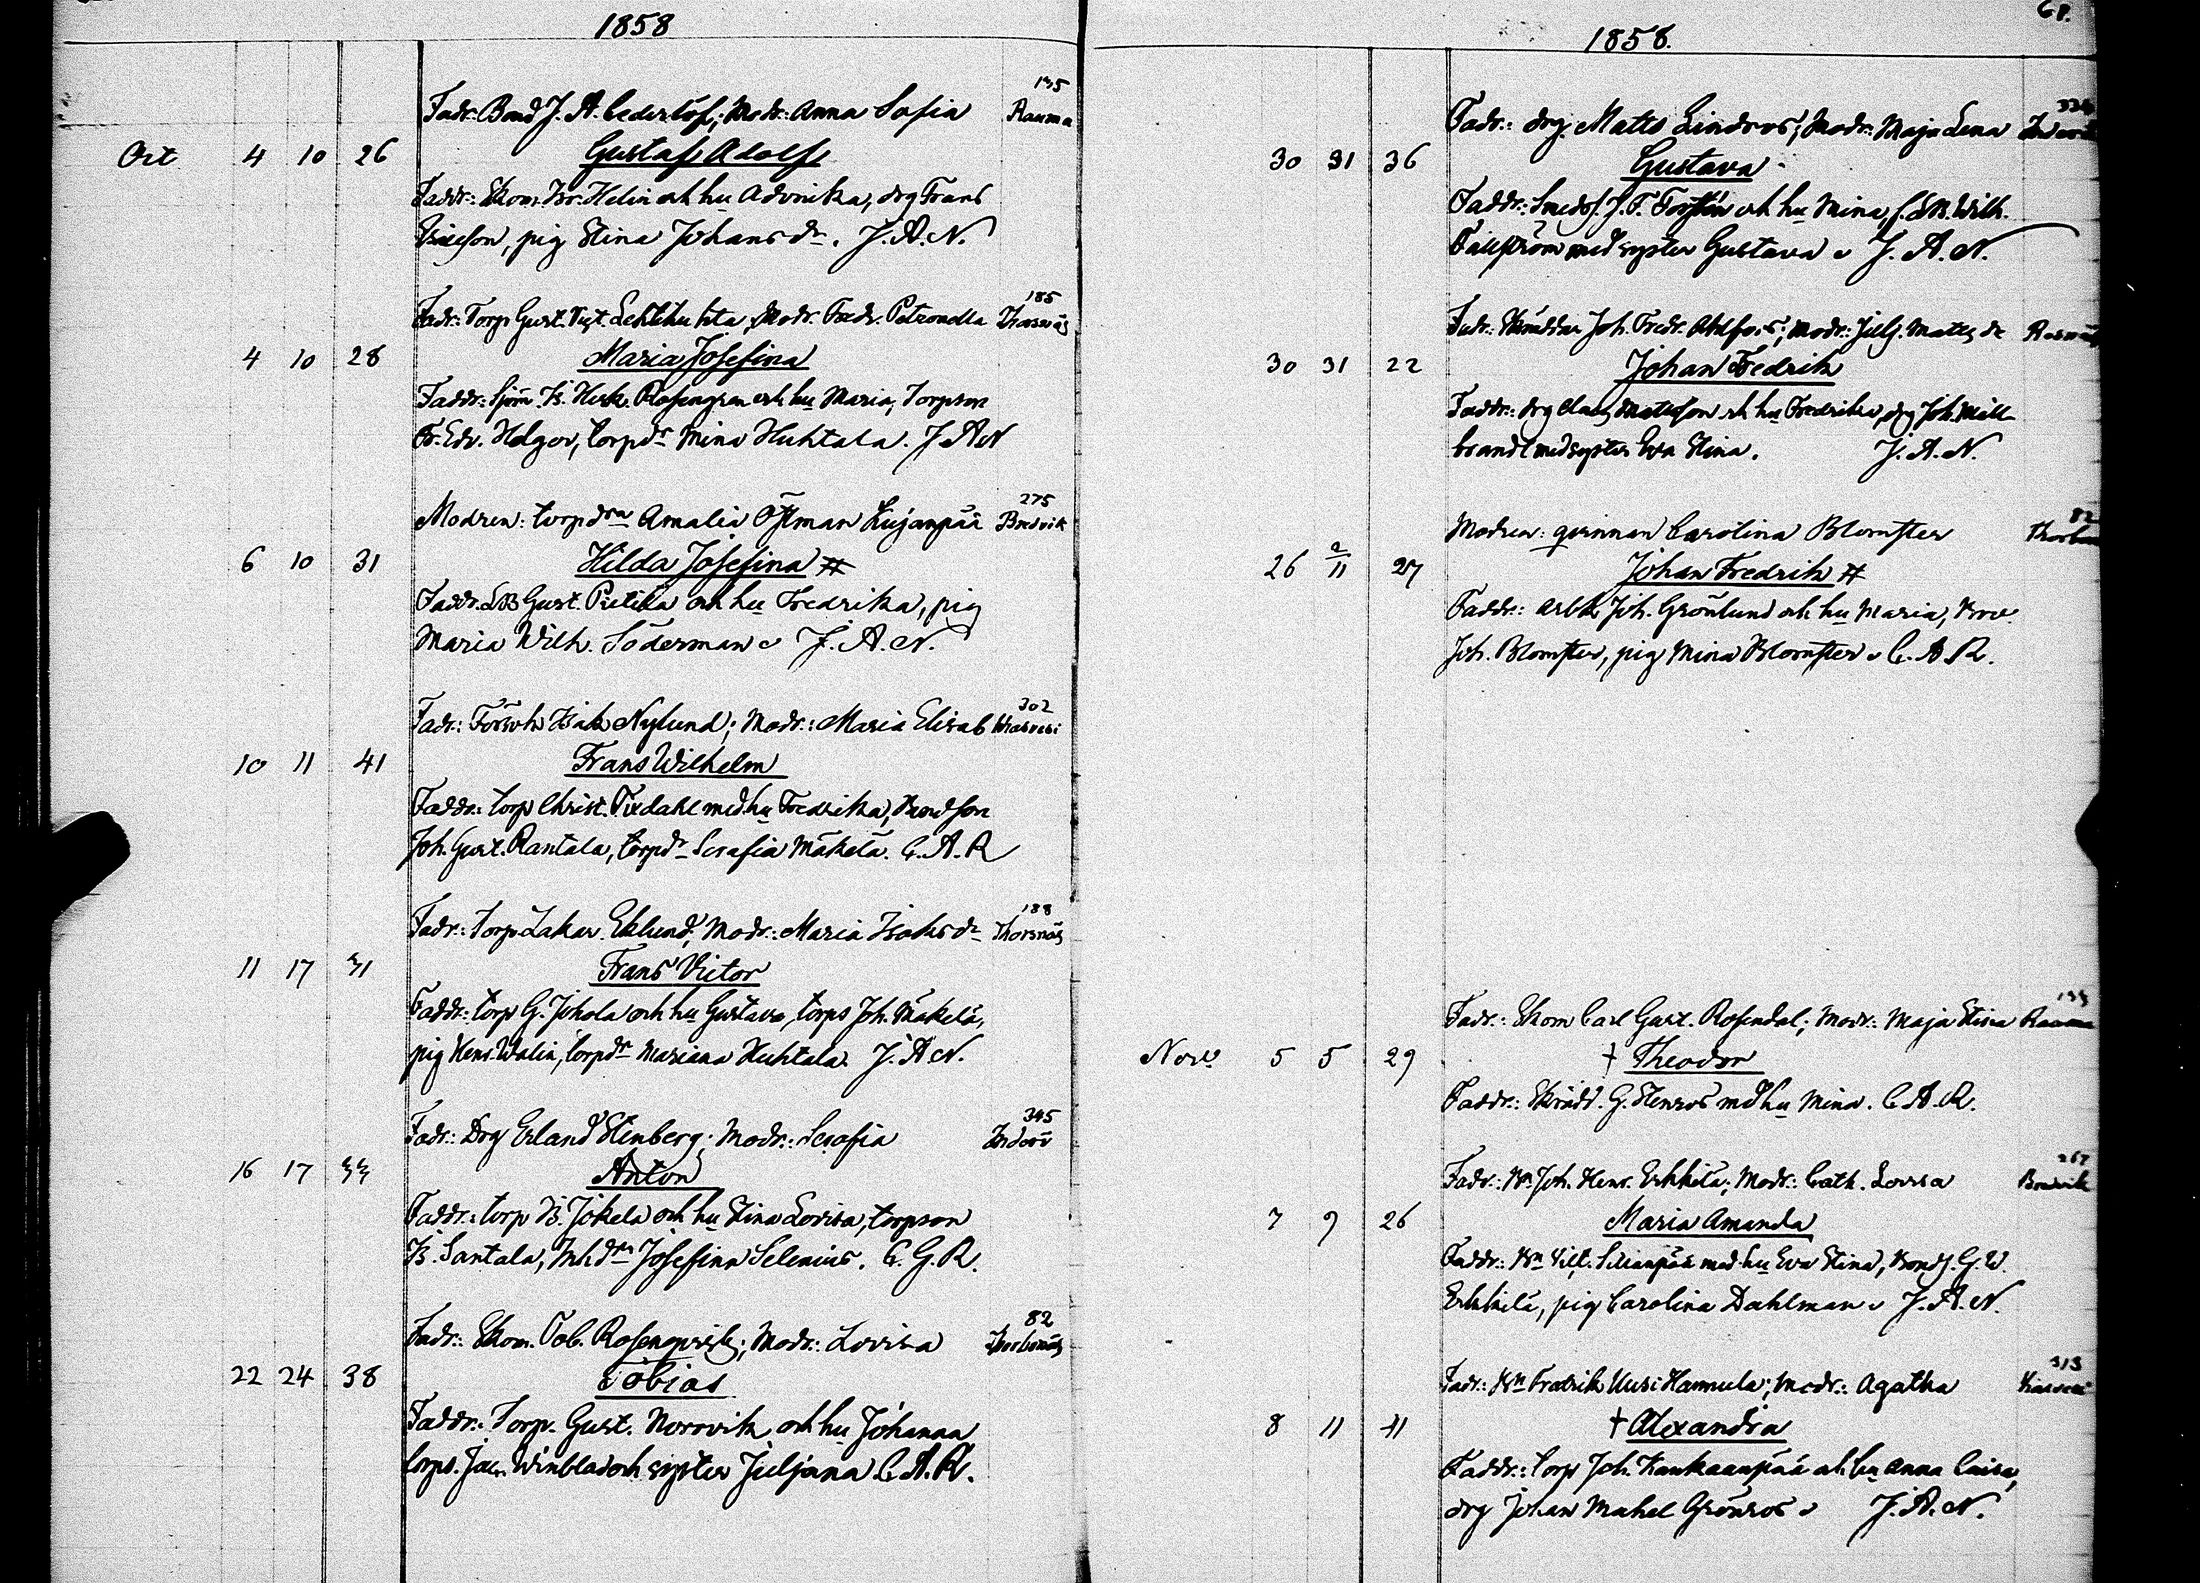 1858
135
Fadr: Bond J. A. Cederlöf; Modr: Anna Sofia Rauma
Oct 4 10 26 Gustaf Adolf
Faddr: Skom. Isr. Helin och hu Advrika, drg Frans
Ericson, pig Stina Johans dr. J. A. N.
185
Fadr: Torp Gust. Vigt. Lehtihuhta, Modr. Fredr. Petronella Thorsnäs
4 10 28 Maria Josefina
Faddr: Sjöm. Is. Henr. Rosengren och hu Maria, Torpson
Fr. Edv. Helgor, torpdr Mina Huhtala. J A N
275
Modren: torpdrn Amalia Östman Kujanpää Bredvik
6 10 31 Hilda Josefina #
Faddr. LB Gust. Pietila och hu Fredrika, pig
Maria Wilh. Söderman J. A. N.
302
Fadr: Försvh Isak Nylund; Modr: Maria Elisab
10 11 41 Frans Wilhelm
Faddr: torp Christ. Fixdahl med hu Fredrika, Bondson
Joh. Gust. Rantala, torpdr Serafia Mäkelä. C. A. R
188
Fadr: torp Zakar. Eklund, Modr: Maria Isaks dr Thorsnäs
11 17 31 Frans Victor
Faddr: torp G. Johola och hu Gustava, torps Joh. Mäkelä,
pig Henr. Walin, torpdr Mariana Huhtala. J. A N.
345
Fadr: Drg Erland Stenberg; Modr: Serafia Inderö
16 17 33 Anton
Faddr: torp Is. Jokela och hu Stina Lovisa, torpson
Is. Santala, Inh dr Josefina Selenius. C. G. R.
82
Fadr: Skom. Tob. Rosenqvist; Modr: Lovisa
22 24 38 Tobias
Faddr: Torp. Gust. Norrvik och hu Johanna
torps. Jac. Winblad och syster Juljana C. A. R.
1858.
Fadr: drg Matts Lindros; Modr: Maja Lena
30 31 36 Gustava
Faddr: Smeds J. F. Forstén och hu Mina, Wilh.
Fällström med syster Gustava J. A. N.
Fadr: Skräddar Joh. Fredr. Ahlfors; Modr: Julj. Matts dr
30 31 22 Johan Fredrik
Faddr: drg Mattsson och hu Fredrika, drg Joh. Will
brandt med syster Eva Stina. J. A. N.
82
Modren: qvinnan Carolina Blomster
26 2/11 27 Johan Fredrik #
Faddr: arbk Joh. Grönlund och hu Maria,
Joh. Blomster, pig Mina Blomster C. A. R.
Fadr: Skom Carl Gust. Rosendal; Modr: Maja Stina Rauma
Nov 5 5 29 † Theodor
Faddr: Skrädd. G. Stenros med hu Mina. C. A. R.
267
Fadr: Bn Joh. Henr. Erkkilä; Modr: Cath. Lovisa Bredvik
7 9 26 Maria Amanda
Faddr: Bn Vikt. med hu Eva Stina, Bonds. G. W.
Erkkilä, pig Carolina Dahlman J. A. N.
313
Fadr: Bn Fredrik Uusi Hannula; Modr: Agatha
8 11 41 † Alexandra
Faddr: torp Joh. Kankaanpää och hu Anna Caisa,
drg Johan Mickel Grönros J. A. N.